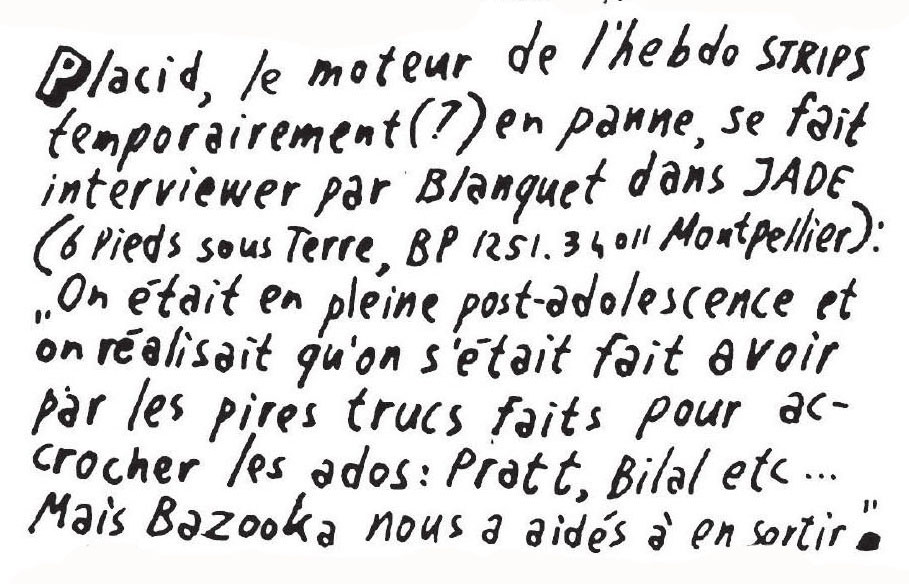 Placid, le moteur de l'hebdo STRIPS
temporairement(?) en panne, se fait
interviewer par Blanquet dans JADE
(6 Pieds sous Terre, BP 1251. 34011 Montpellier):
„On était en pleine post-adolescence et
on réalisait qu'on s'était fait avoir
par les pires trucs faits pour ac-
crocher les ados: Pratt, Bilal etc...
Mais Bazooka nous a aidés à en sortir".